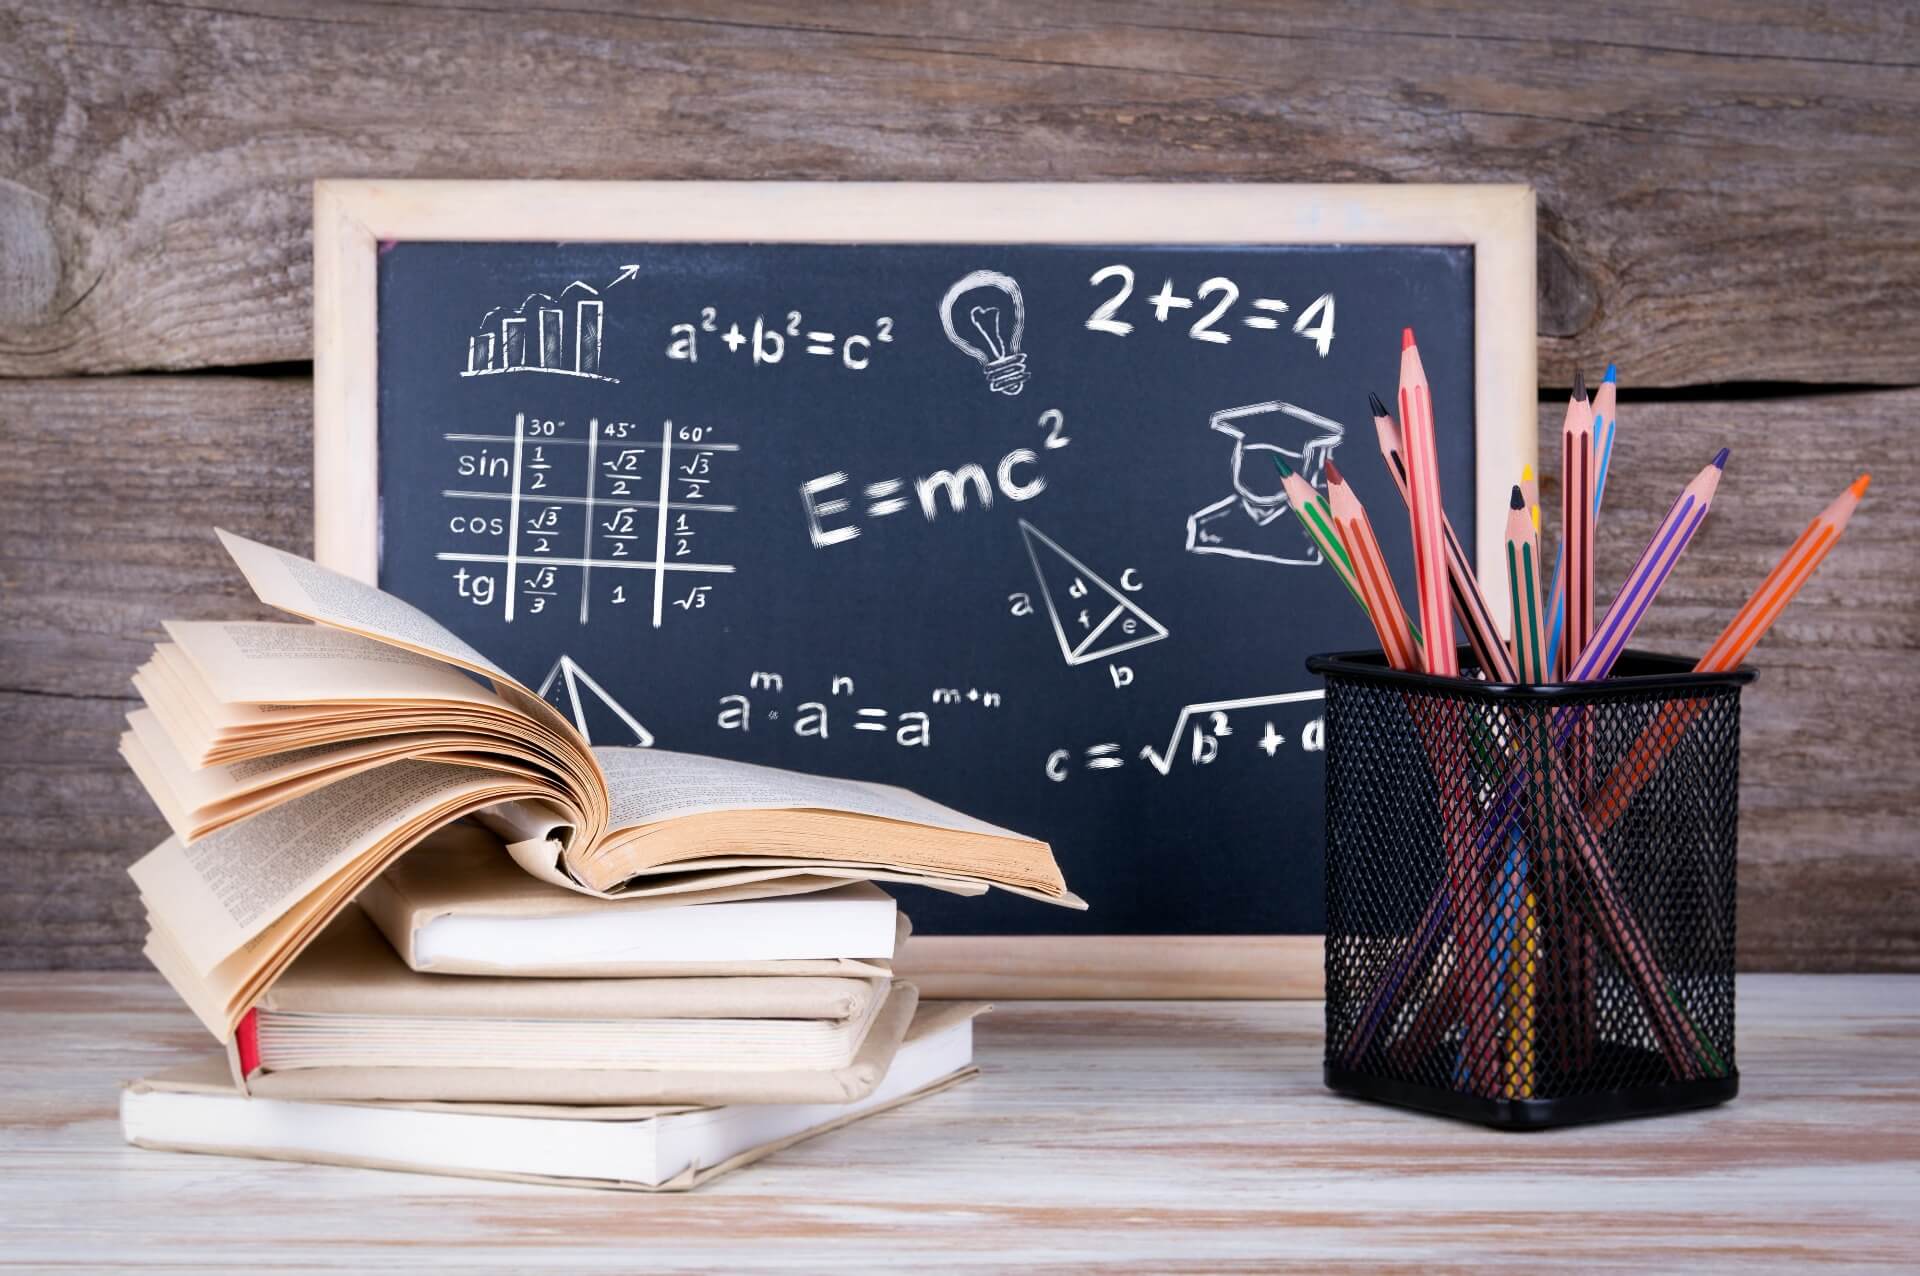 a²+b²=c²
2+2=4
30° 45° 60°
sin 1/2 √2/2 √3/2
cos √3/2 √2/2 1/2
tg √3/3 1 √3
E=mc²
a d c
f e
b
aᵐ·aⁿ=aᵐ⁺ⁿ
c=√b²+